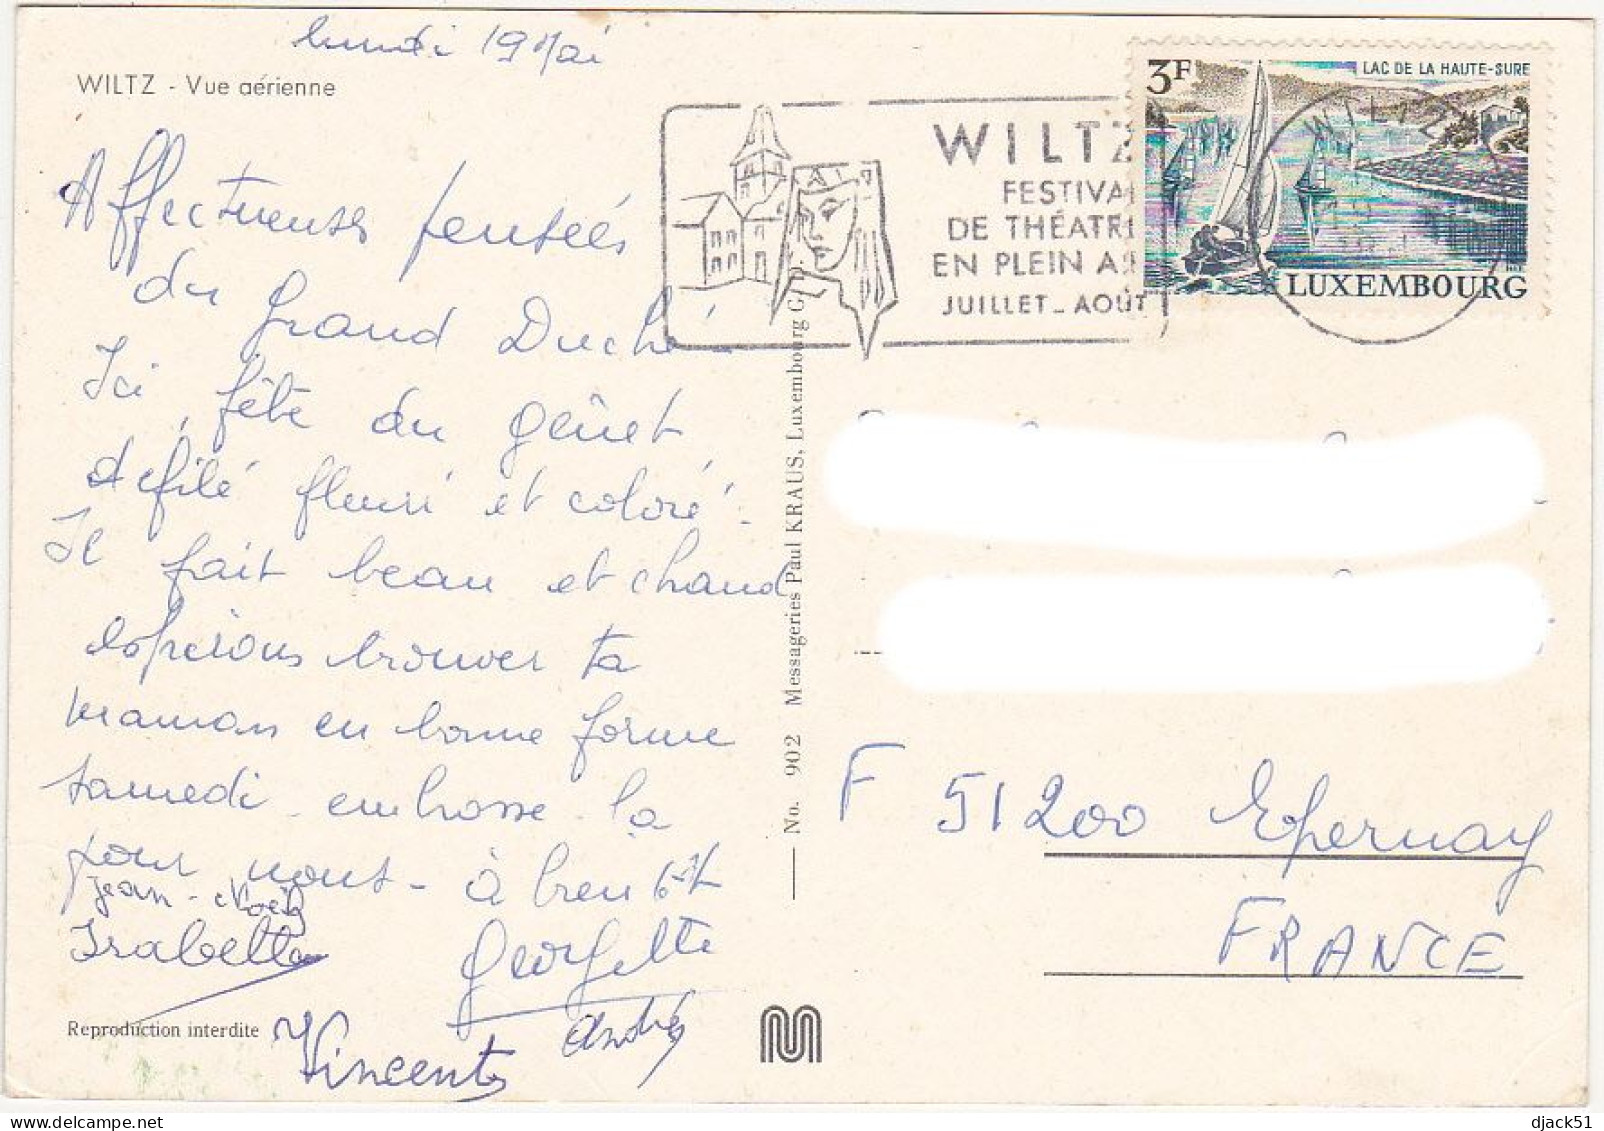 lundi 19 Mai
WILTZ - Vue aérienne
Affectueuses pensées
du Grand Duché -
Ici, fête du genêt,
défilé fleuri et coloré -
Il fait beau et chaud
espérons trouver ta
maman en bonne forme
samedi - embrasse - la
pour nous - à bientôt
Jean-Noël
Isabelle
Georgette
Vincent
André
Reproduction interdite
No. 902 Messageries Paul KRAUS, Luxembourg G
WILTZ
FESTIVA
DE THÉATR
EN PLEIN A
JUILLET - AOÛT
3F
LAC DE LA HAUTE-SURE
WILTZ
LUXEMBOURG
F 51200 Epernay
FRANCE
djack51